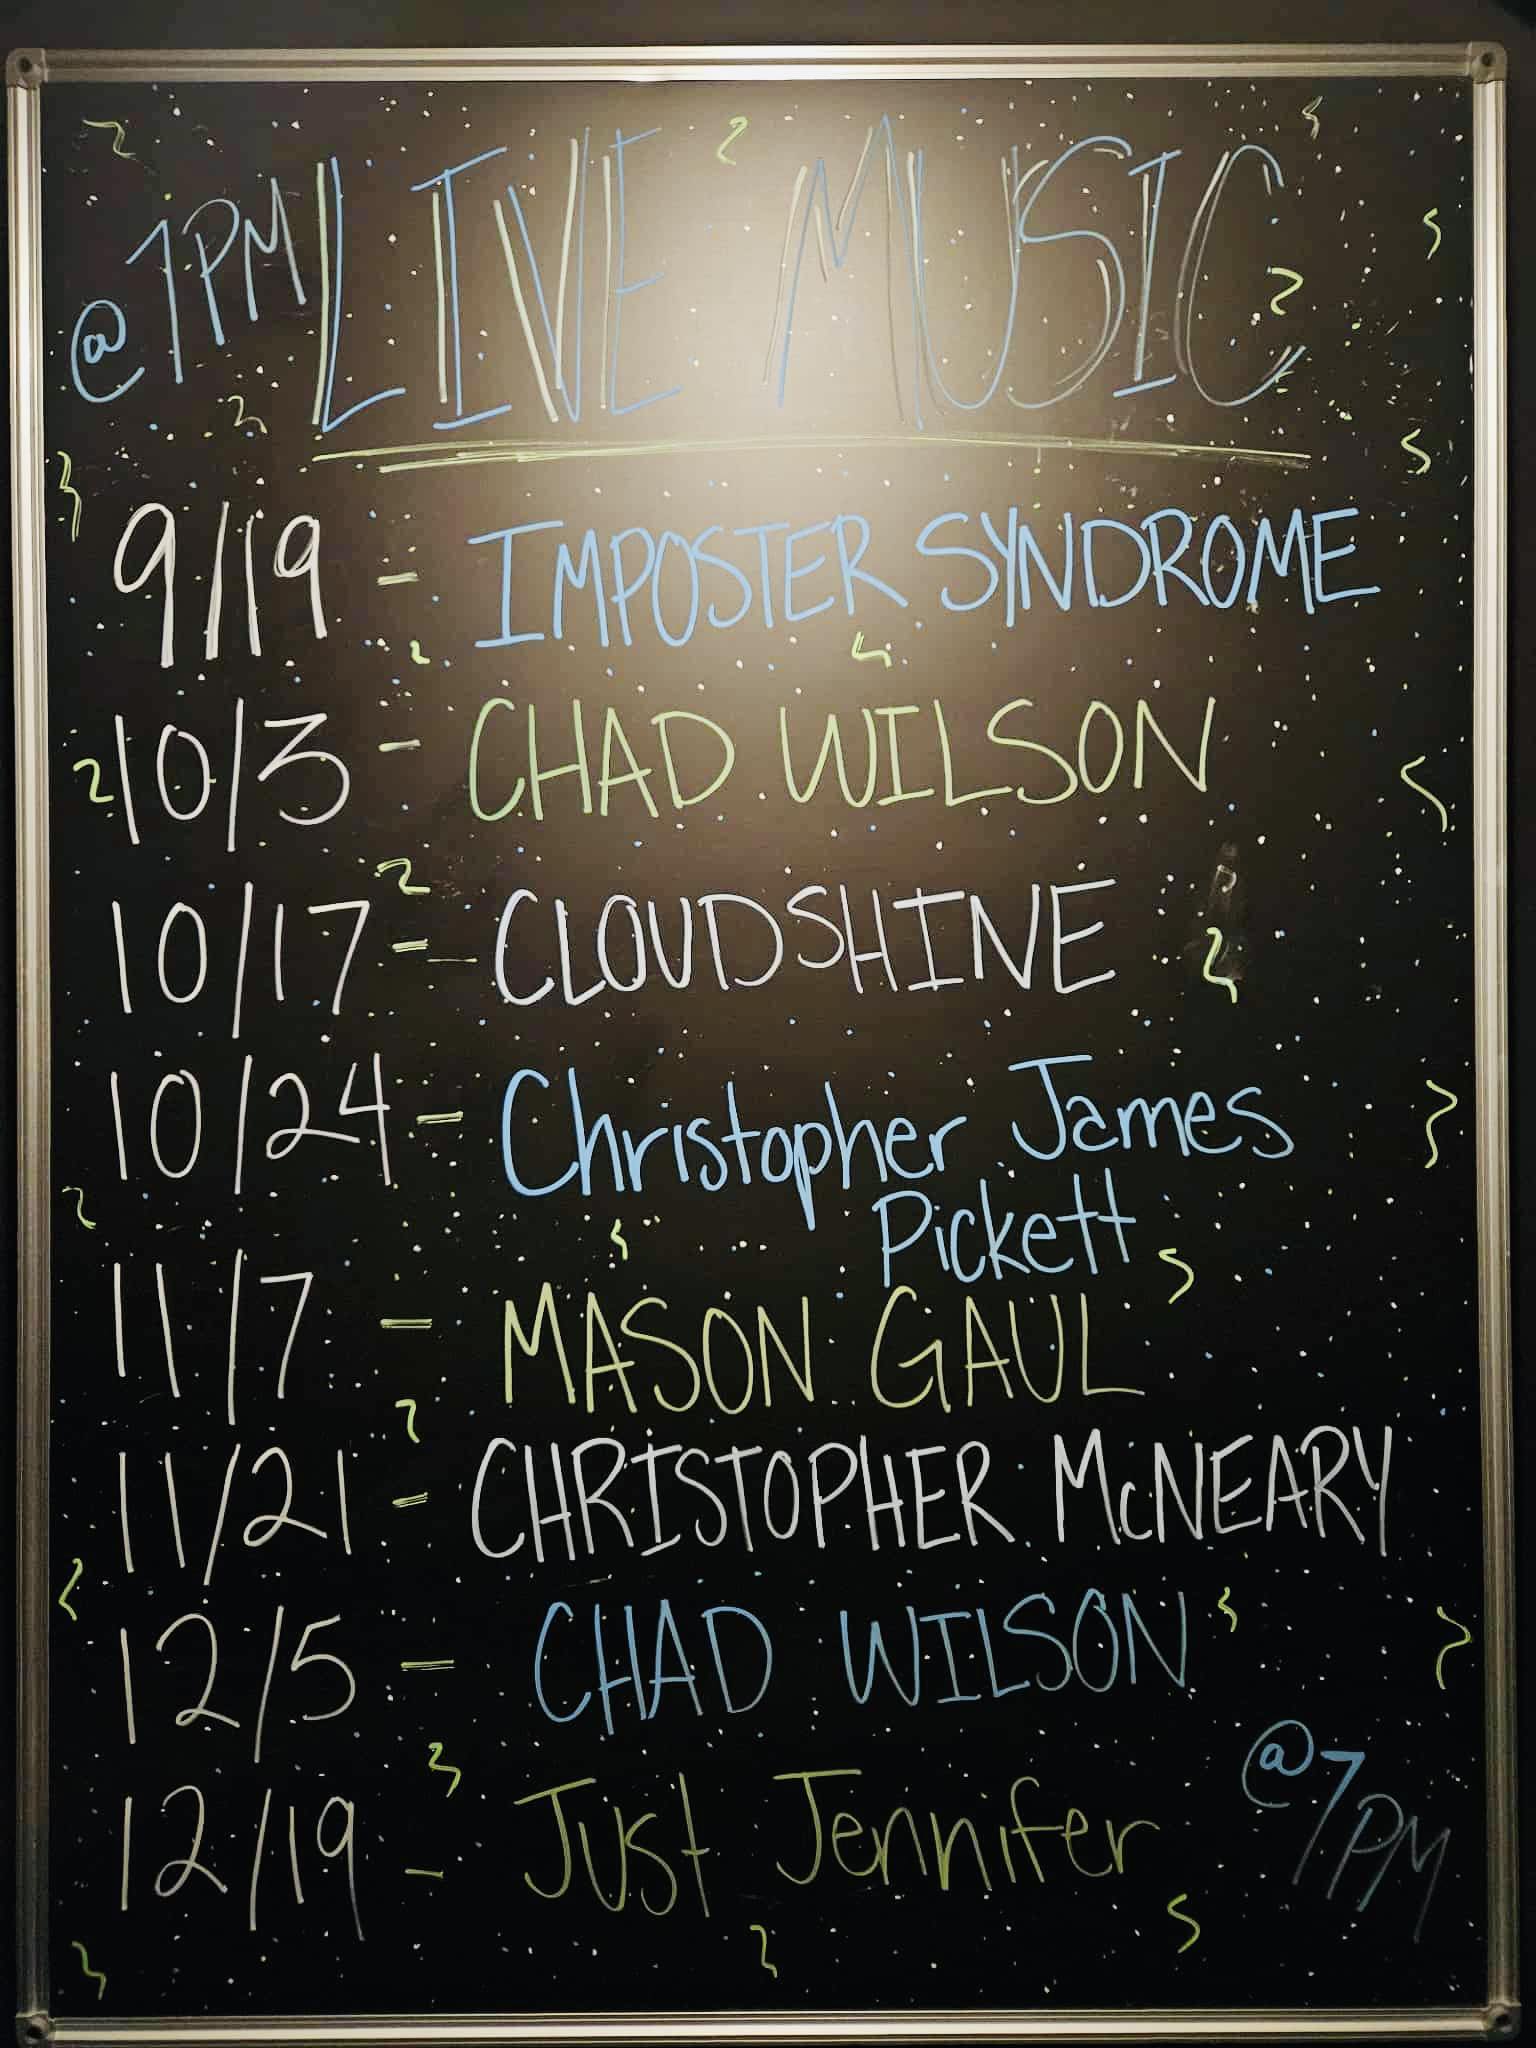 @ 7PM LIVE MUSIC
9/19 - IMPOSTER SYNDROME
10/3 - CHAD WILSON
10/17 - CLOUDSHINE
10/24 - Christopher James
Pickett
11/7 - MASON GAUL
11/21 - CHRISTOPHER McNEARY
12/5 - CHAD WILSON
12/19 - Just Jennifer
@ 7PM